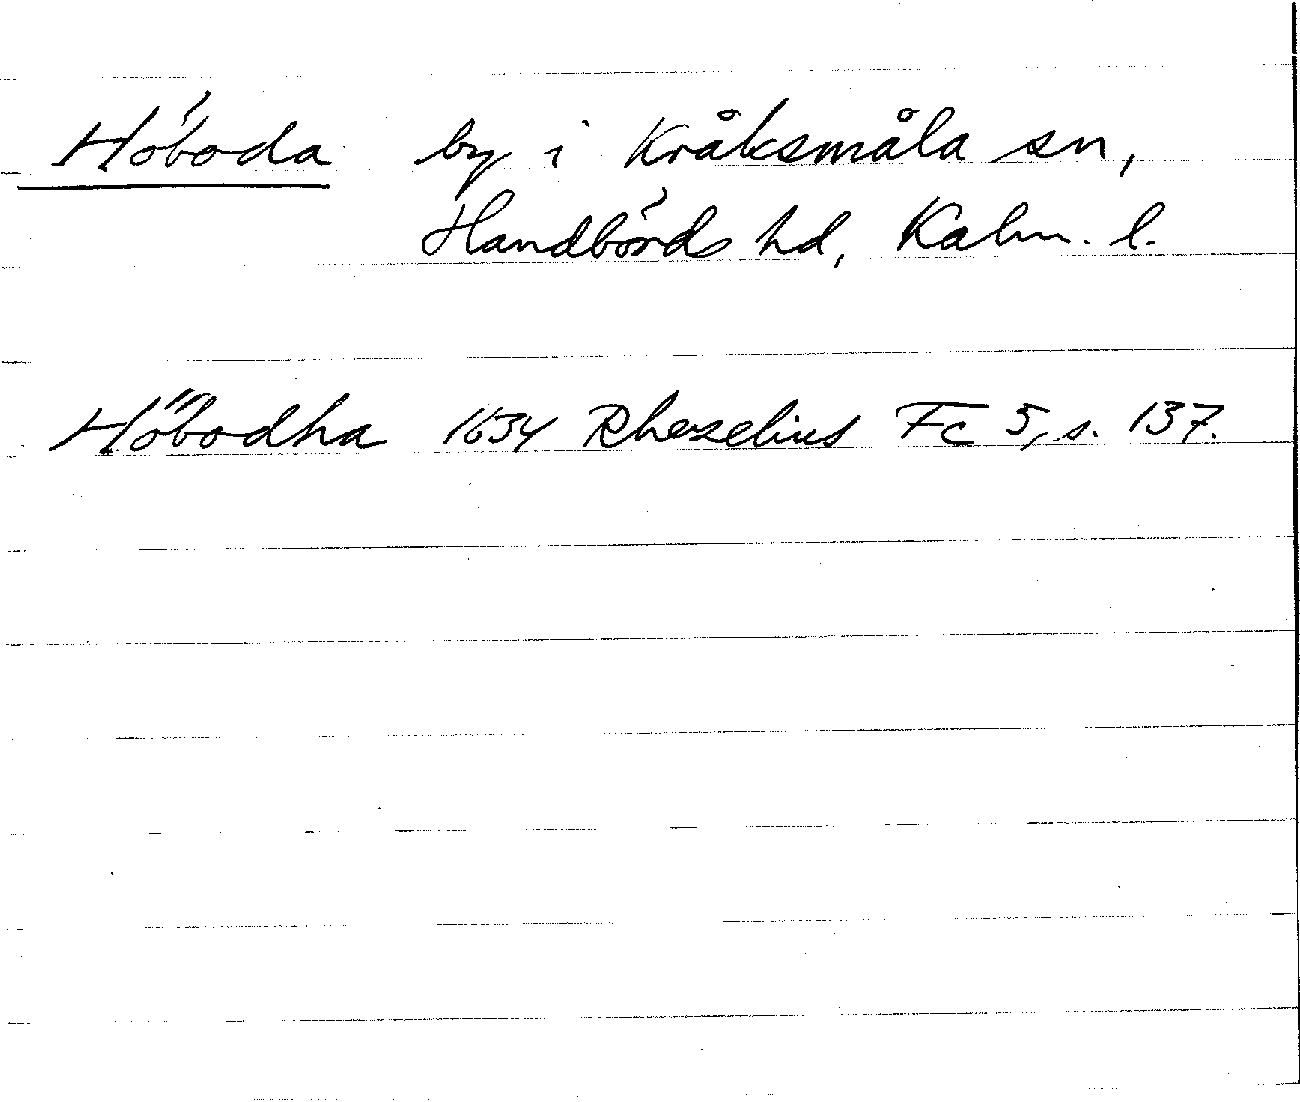 Höboda by i Kråksmåla sn,
Handbörds hd, Kalm. l.
Höbodha 1634 Rhezelius Fc 5, s. 137.